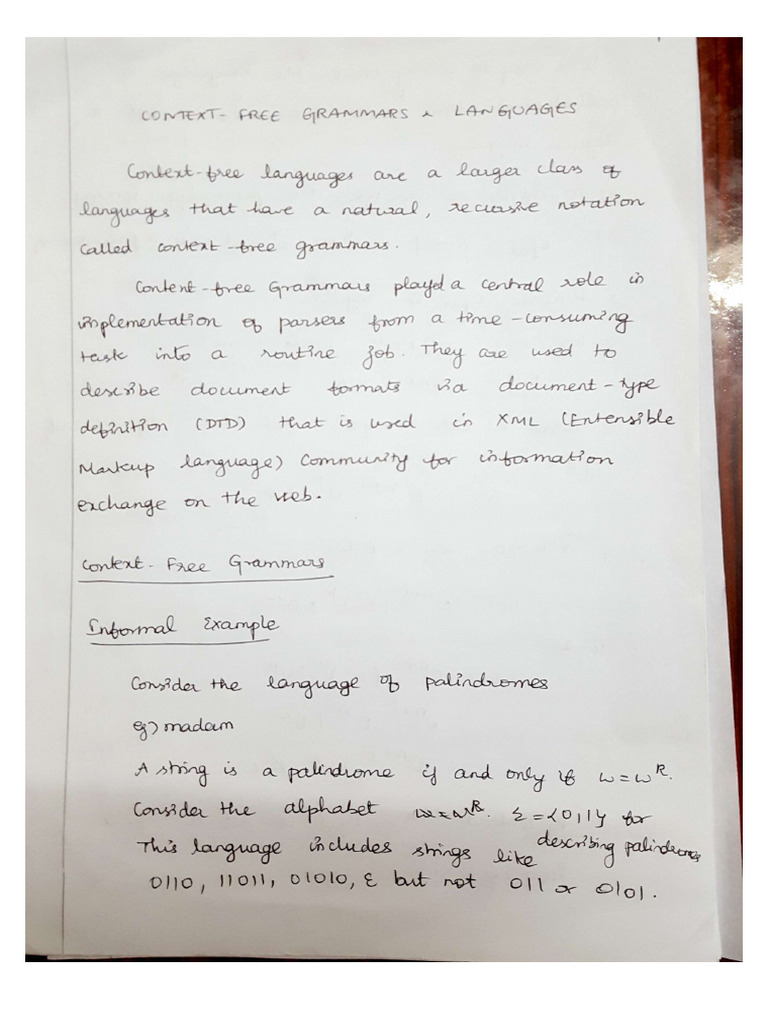 CONTEXT-FREE GRAMMARS & LANGUAGES
Context-free languages are a larger class of
languages that have a natural, recursive notation
called context-free grammars.
Context-free Grammars played a central role in
implementation of parsers from a time-consuming
task into a routine job. They are used to
describe document formats via document-type
definition (DTD) that is used in XML (Extensible
Markup language) Community for information
exchange on the web.
Context-Free Grammars
Informal Example
Consider the language of palindromes
eg) madam
A string is a palindrome if and only if w=wᴿ.
Consider the alphabet w=wᴿ. Σ={0,1} for
describing palindromes
This language includes strings like
0110, 11011, 01010, ε but not 011 or 0101.